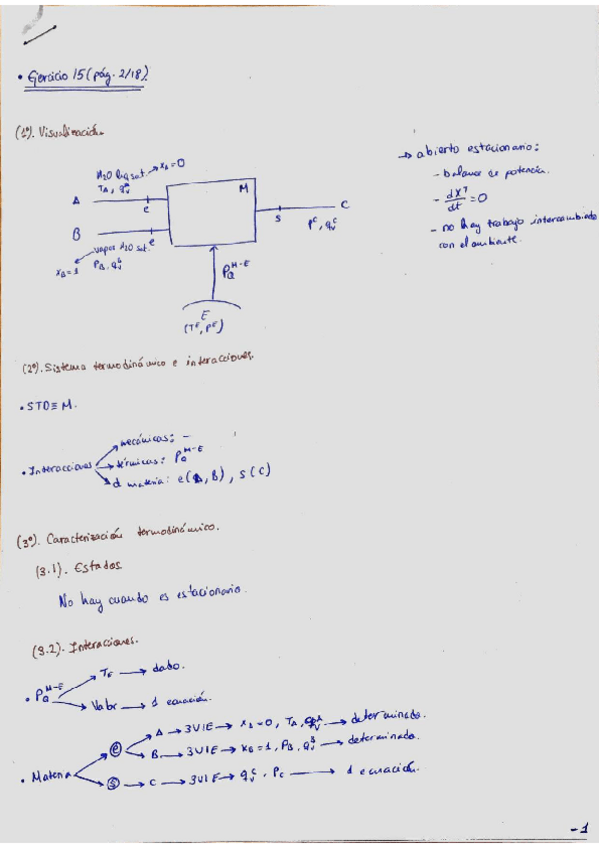 • Ejercicio 15 (pág. 2/18).
(1º). Visualización.
H2O líq sat. → xA = 0
TA, qvA
A
e
M
s
C
pC, qvC
B
e
vapor H2O sat.
xB = 1
PB, qvB
PQ M-E
E
(TE, PE)
→ abierto estacionario:
- balance de potencia.
- dX^T/dt = 0
- no hay trabajo intercambiado
con el ambiente.
(2º). Sistema termodinámico e interacciones.
• STD ≡ M.
• Interacciones
→ mecánicas: -
→ térmicas: PQ M-E
→ d materia: e(A, B), s(C)
(3º). Caracterización termodinámico.
(3.1). Estados
No hay cuando es estacionario.
(3.2). Interacciones.
• PQ M-E
→ TE → dado.
→ Valor → 1 ecuación.
• Materia
e
→ A → 3VIE → xA = 0, TA, qvA → determinado.
→ B → 3VIE → xB = 1, PB, qvB → determinado.
s → C → 3VIE → qvC, PC → 1 ecuación.
-1